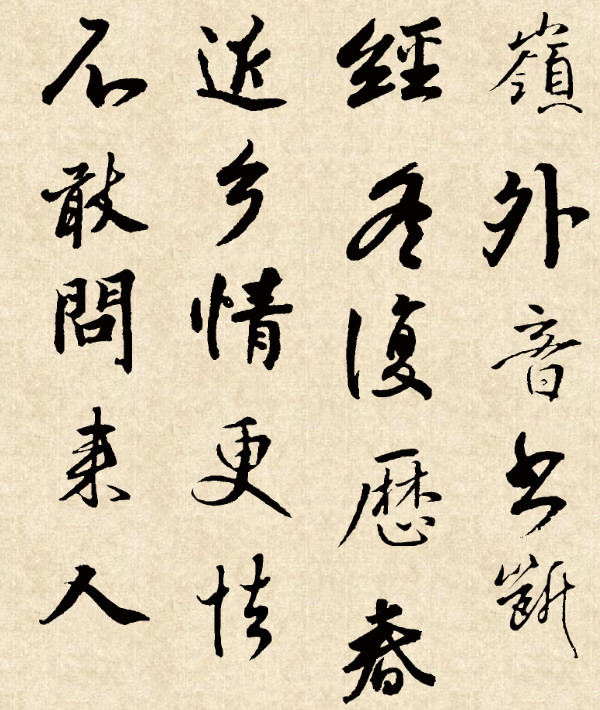 嶺外音书断
經冬復歷春
近乡情更怯
不敢問来人